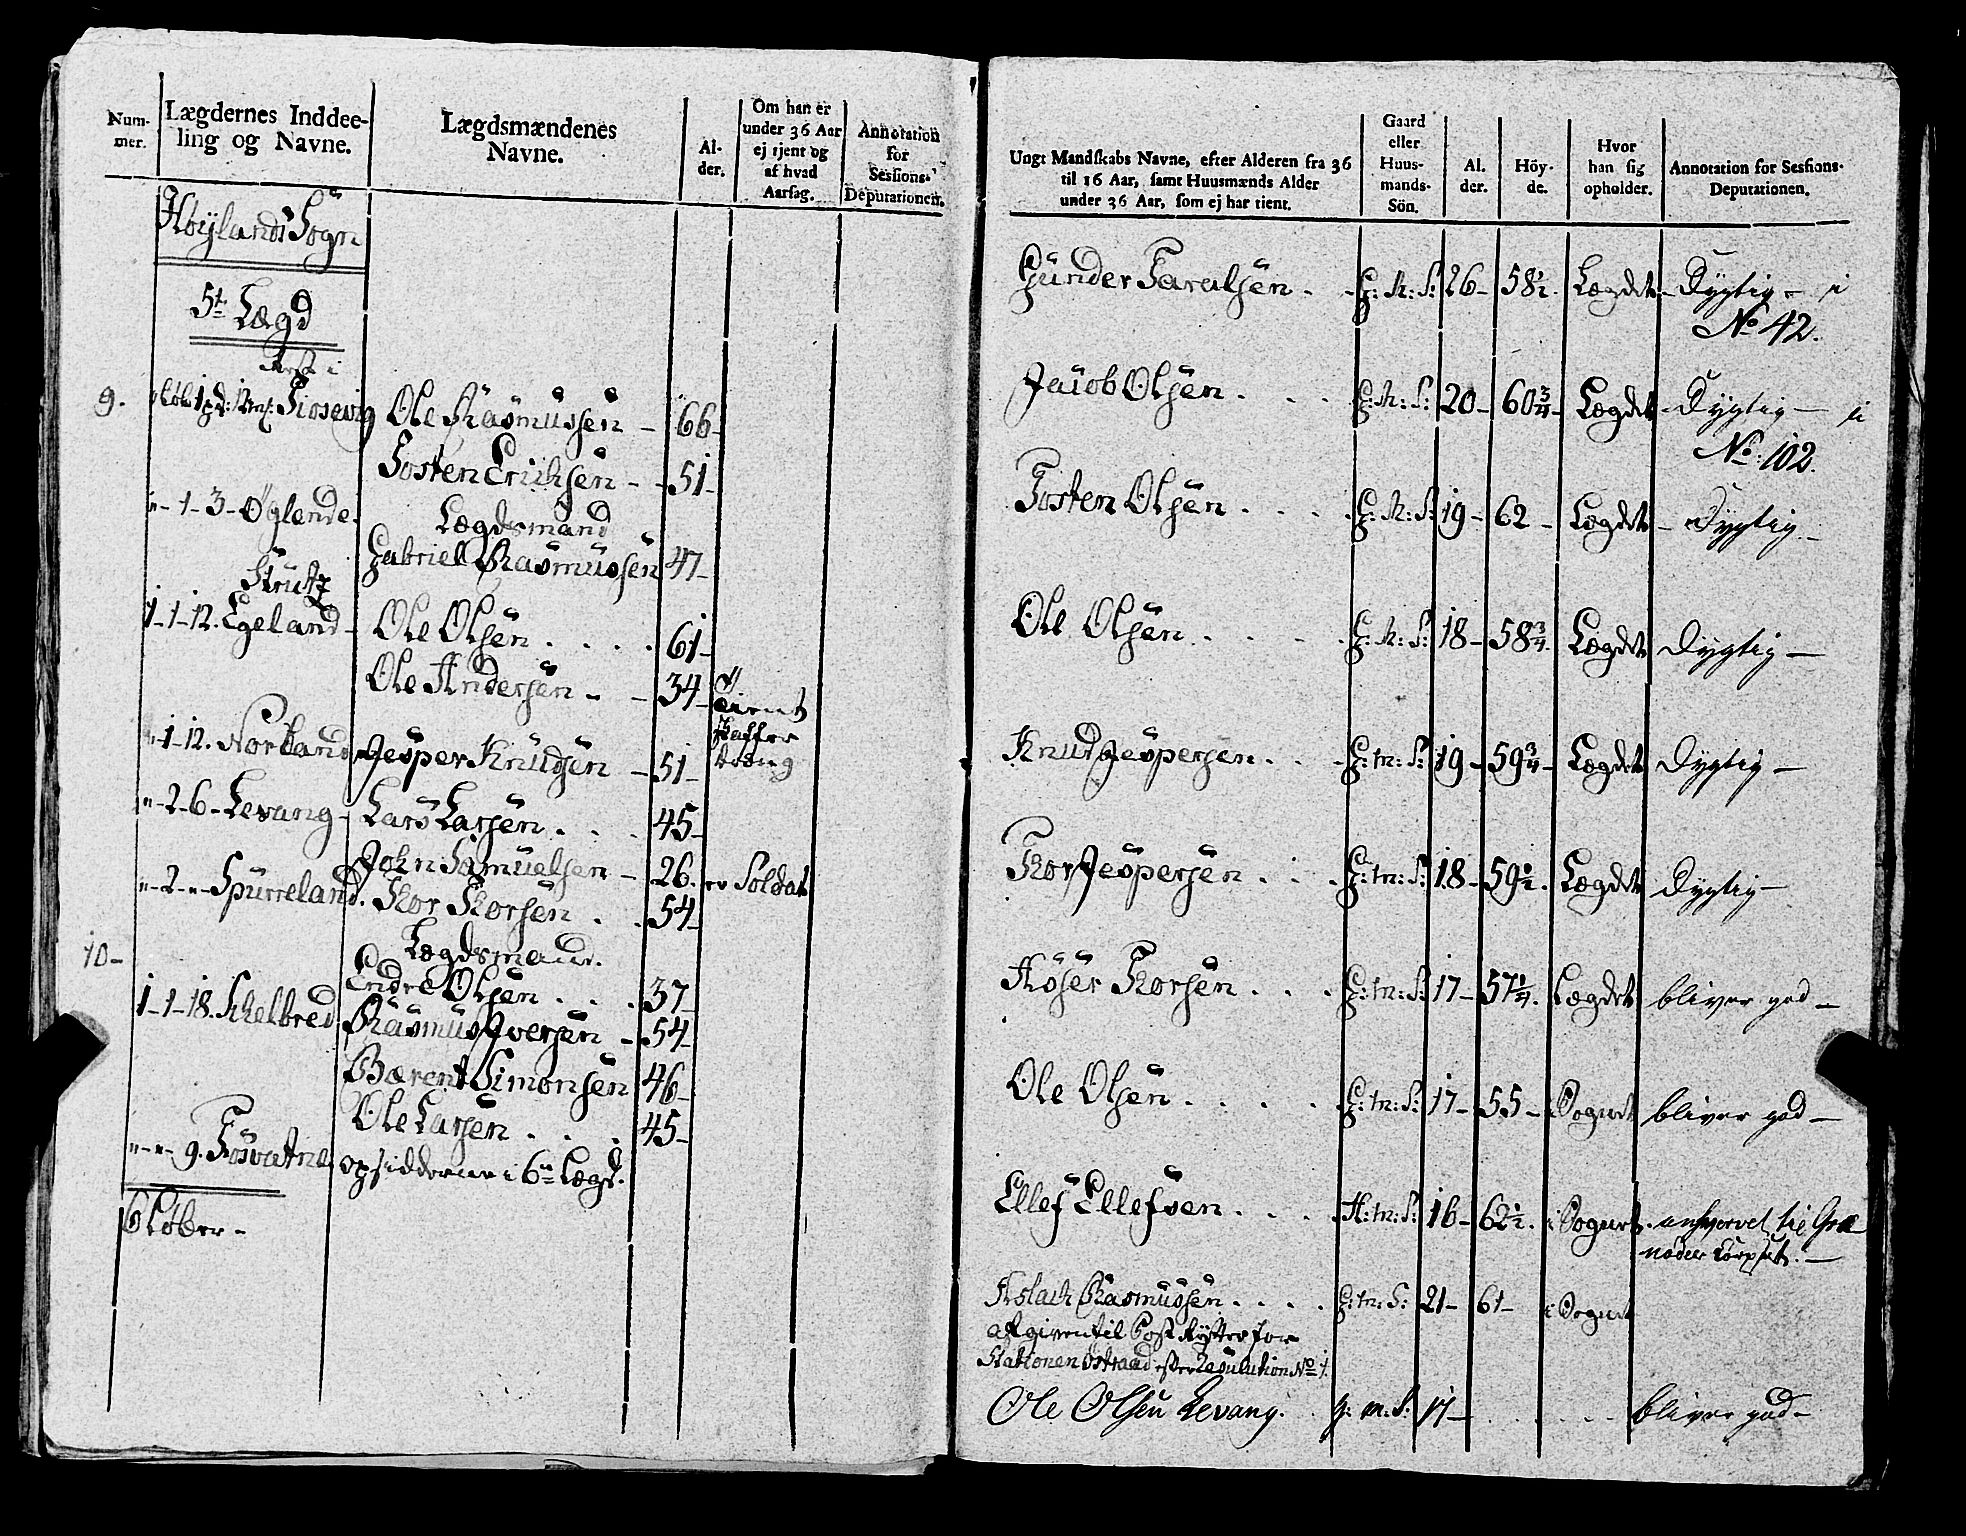 Num-
mer.
Lægdernes Inddee-
ling og Navne.
Lægdsmændenes
Navne.
Al-
der.
Om han er
under 36 Aar
ej tjent og
af hvad
Aarsag.
Annotation
for
Sessions-
Deputationen.
Høylands Sogn
5te Lægd
Rest i
9. 1 Tiosevig Ole Rasmussen - 66-
Tosten Erichsen - - 51-
"- 1- 3- Øglende. Lægdsmand
Gabriel Rasmussen 47-
Strutz
1-1-12. Egeland- Ole Olsen . . . . 61-
Ole Andersen - - 34-
"-1-12. Norland Jesper Knudsen - 51-
"-2-6- Levang- Lars Larsen . . . 45-
John Samuelsen - 26. er Soldat
"-2-"- Spurreland. Thor Thorsen . . 54-
10- Lægdsmand.
Endre Olsen . . . 37-
1-1-18. Schelbred Rasmus Iversen - 54-
Bærent Simonsen 46-
Ole Larsen . . . 45-
"-"-9. Fosvatne opsidderne i 6te Lægd.
6 Løber-
Ungt Mandskabs Navne, efter Alderen fra 36
til 16 Aar, samt Huusmænds Alder
under 36 Aar, som ej har tient.
Gaard
eller
Huus-
mands-
Sön.
Al.
der.
Höy-
de.
Hvor
han sig
opholder.
Annotation for Sessions-
Deputationen.
Gunder Taralsen . . G: M: S: 26- 58½. Lægdet- Dygtig- i
No 42.
Jacob Olsen . . . . G: M: S: 20- 60¾- Lægdet- Dygtig- i
No: 102.
Tosten Olsen . . . . G: M: S: 19- 62- Lægdet- Dygtig.-
Ole Olsen . . . . . G: M: S: 18- 58¾. Lægdet Dygtig-
Knud Jespersen . . . G: m: S: 19- 59¾- Lægdet Dygtig-
Thor Jespersen . . . G: m: S: 18- 59½. Lægdet Dygtig-
Asser Thorsen . . . G: m: S: 17- 57¼. Lægdet bliver god-
Ole Olsen . . . . . G: m: S: 17- 55- i Sognet bliver god-
Ellef Ellefsen . . . . H: m: S: 16- 62½. i Sognet. anhvervet til Gre
nadeer Corpset.-
Aslach Rasmussen . . . . G: m: S: 21- 61- i Sognet
afgiven til Post Rytter for
Stationen Østraad efter Resulution No 1.
Ole Olsen Levang. . g. m. S: 17- . . . . . bliver god-